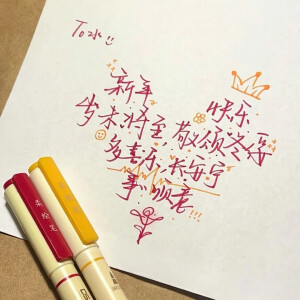 To水
新年 快乐
岁末将至 敬颂冬绥
多喜乐 长安宁
事 顺意!!!
柔绘笔